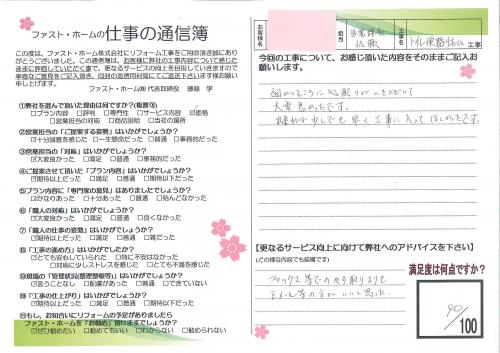 ファスト・ホームの仕事の通信簿
この度は、ファスト・ホーム株式会社にリフォーム工事をご用命頂き誠にあり
がとうございました。この通信簿は、お客様に弊社の工事内容について感じた
ままに評価していただく事で、更なるサービスの向上を目指していきますので
率直なご意見をご記入頂き、同封の返信用封筒にてご返送下さいます様お願い
申し上げます。
ファスト・ホーム㈱ 代表取締役 藤波 学
①弊社を選んで頂いた理由は何ですか?(複数可)
☑プラン内容 □評判 □専門性 □サービス内容 ☑価格
□営業担当の対応 □商品説明 □当社の場所
②営業担当の「ご提案する姿勢」はいかがでしょうか?
☑十分誠意を感じた □一生懸命だった □普通 □事務的だった
③営業担当の「対応」はいかがでしょうか?
☑大変良かった □満足 □普通 □事務的だった
④ご提案させて頂いた「プラン内容」はいかがでしょうか?
☑期待以上だった □満足 □期待通り □期待以下だった
⑤プラン内容に「専門家の意見」はありましたでしょうか?
☑かなりあった □十分あった □普通 □殆んどなかった
⑥「職人の対応」はいかがでしょうか?
☑大変良かった □満足 □普通 □良くなかった
⑦「職人の仕事の姿勢」はいかがでしょうか?
☑期待以上だった □満足 □普通 □雑だった
⑧「工事の進め方」はいかがでしたでしょうか?
☑とても安心していられた □特に不安はなかった
□対応に少しストレスを感じた □とても不満を感じた
⑨現場の「管理状況(整理整頓等)」はいかがでしょうか?
☑言うことなし □配慮があった □普通 □できていない
⑩「工事の仕上がり」はいかがでしょうか?
☑期待以上だった □満足 □期待通り □期待以下だった
⑪もし、お知合いにリフォームの予定がありましたら
ファスト・ホームを「お勧め」頂けますでしょうか?
☑ぜひ勧めたい □勧めてもいい □わからない □勧められない
お客様名
担当
佐藤
工事名
トイレ
工事
今回の工事について、お感じ頂いた内容をそのままご記入お
願いします。
大変良かったです。
少しでも早く工事に入ってほしかったです。
【更なるサービス向上に向けて弊社へのアドバイスを下さい】
(どの様な内容でも結構です)
ファックス等でのやり取りよりも
Eメール等の方がいいと思った。
満足度は何点ですか?
90/100